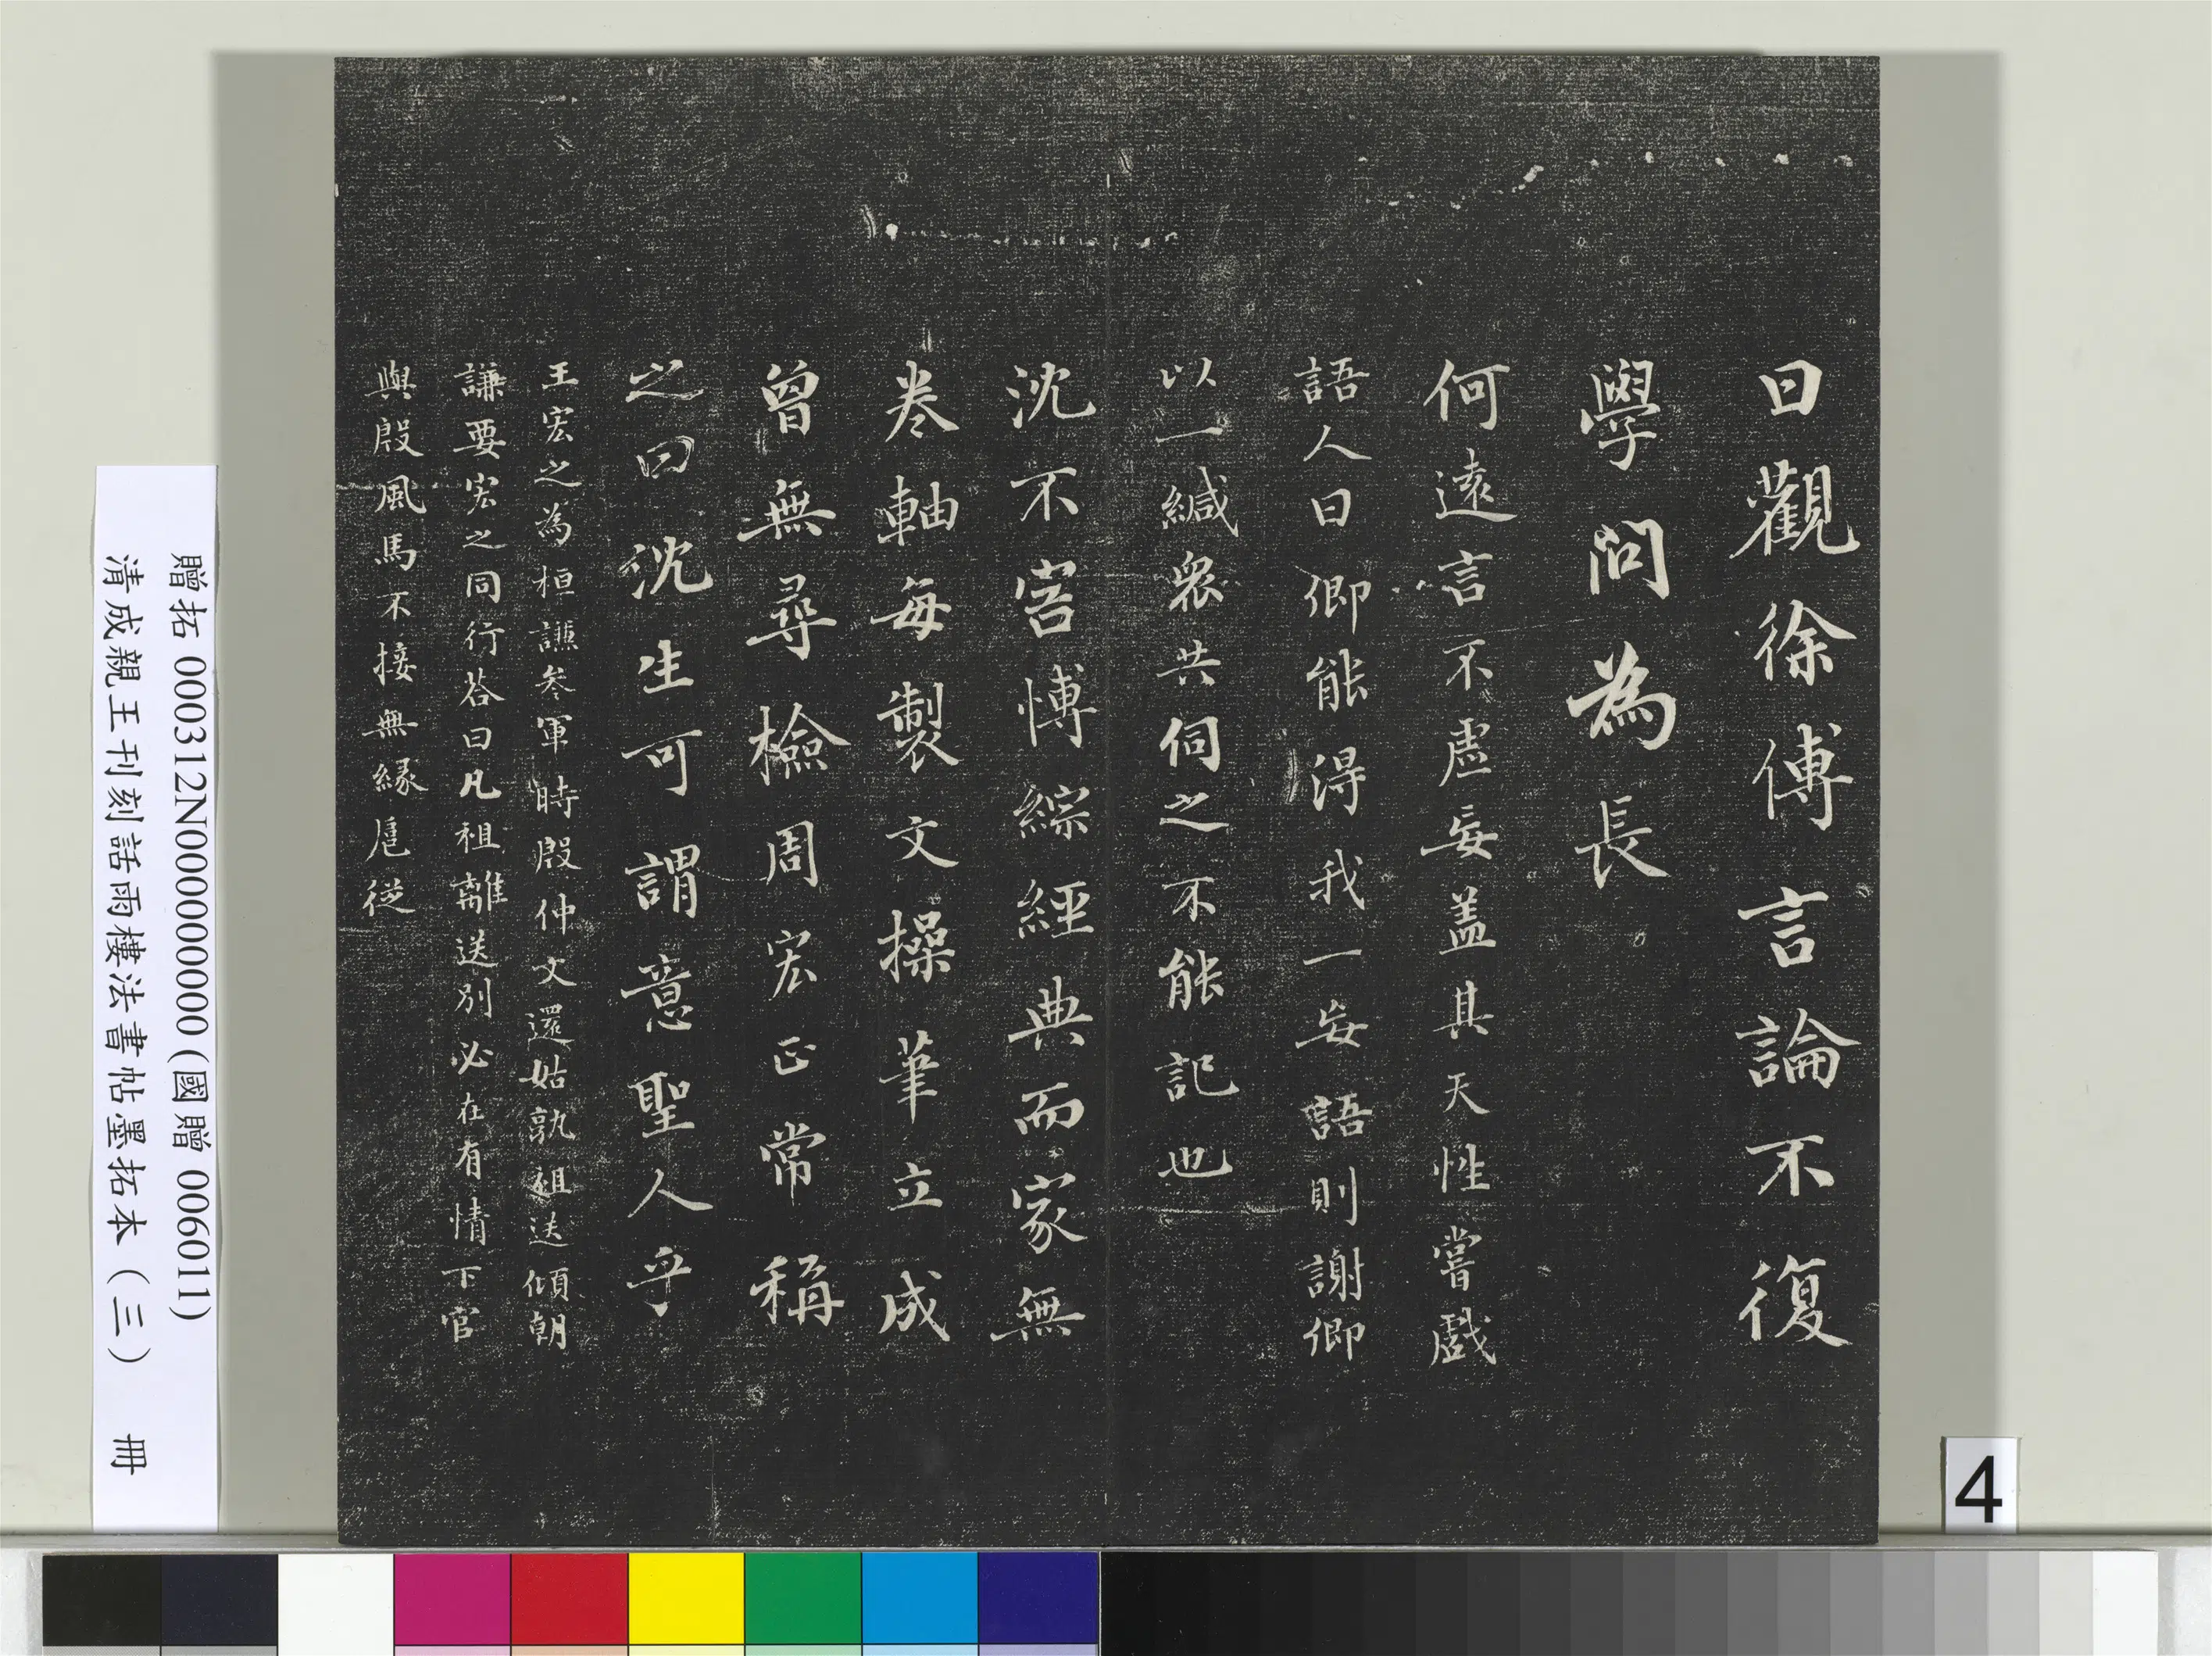 曰觀徐傅言論不復
學問為長
何遠言不虛妄盖其天性嘗戲
語人曰卿能得我一妄語則謝卿
以一縑衆共伺之不能記也
沈不害博綜經典而家無
卷軸每製文操筆立成
曾無尋檢周宏正常稱
之曰沈生可謂意聖人乎
王宏之為桓謙叅軍時殷仲文還姑孰祖送傾朝
謙要宏之同行荅曰凡祖離送別必在有情下官
與殷風馬不接無緣扈從
贈拓 000312N000000000 (國贈 006011)
清成親王刊刻詒晉齋法書帖墨拓本（三） 冊
4